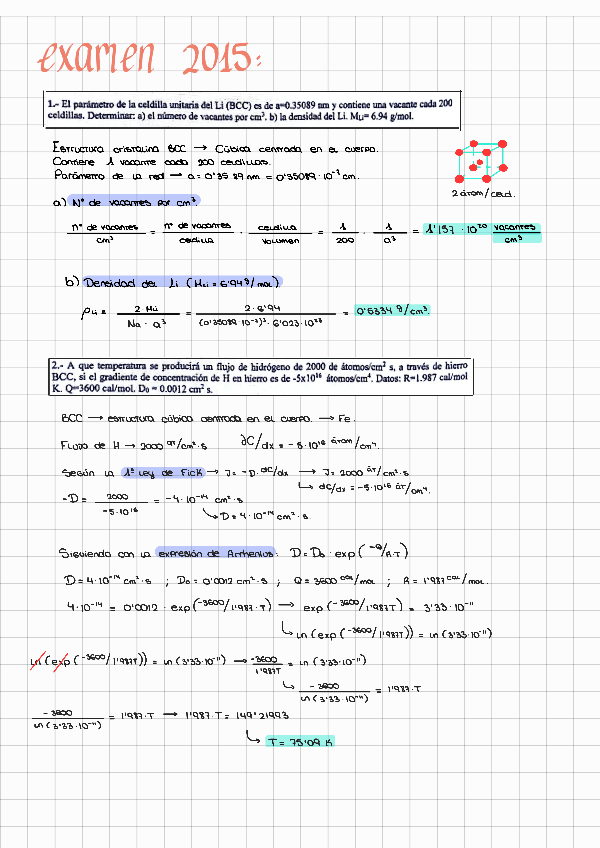 examen 2015:
1.- El parámetro de la celdilla unitaria del Li (BCC) es de a=0.35089 nm y contiene una vacante cada 200
celdillas. Determinar: a) el número de vacantes por cm³. b) la densidad del Li. M_Li= 6.94 g/mol.
Estructura cristalina BCC → Cúbica centrada en el cuerpo.
Contiene 1 vacante cada 200 celdillas.
Parámetro de la red → a = 0'35 89 nm = 0'35089·10⁻⁷ cm.
2 átom/celd.
a) Nº de vacantes por cm³.
nº de vacantes / cm³ = nº de vacantes / celdilla · celdilla / volumen = 1/200 · 1/a³ = 1'157 · 10²⁰ vacantes/cm³
b) Densidad del Li (M_Li = 6'94 g/mol)
ρLi = 2·MLi / Na · a³ = 2·6'94 / (0'35089·10⁻⁷)³·6'023·10²³ = 0'5334 g/cm³.
2.- A que temperatura se producirá un flujo de hidrógeno de 2000 de átomos/cm² s, a través de hierro
BCC, si el gradiente de concentración de H en hierro es de -5x10¹⁶ átomos/cm⁴. Datos: R=1.987 cal/mol
K. Q=3600 cal/mol. D₀ = 0.0012 cm² s.
BCC → estructura cúbica centrada en el cuerpo. → Fe.
Flujo de H → 2000 at/cm²·s ∂C/dx = -5·10¹⁶ átom/cm⁴.
Según la 1ª Ley de Fick → J = -D· dC/dx → J = 2000 át/cm²·s
↳ dC/dx = -5·10¹⁶ át/cm⁴.
-D = 2000 / -5·10¹⁶ = -4·10⁻¹⁴ cm²·s
↳ D = 4·10⁻¹⁴ cm²·s.
Siguiendo con la expresión de Arrhenius: D = D₀ · exp (-Q/R·T)
D = 4·10⁻¹⁴ cm²·s ; D₀ = 0'0012 cm²·s ; Q = 3600 cal/mol ; R = 1'987 cal/mol.
4·10⁻¹⁴ = 0'0012 · exp (-3600/1'987·T) → exp (-3600/1'987T) = 3'33·10⁻¹¹
↳ ln (exp (-3600/1'987T)) = ln (3'33·10⁻¹¹)
ln (exp (-3600/1'987T)) = ln (3'33·10⁻¹¹) → -3600 / 1'987T = ln (3'33·10⁻¹¹)
↳ -3600 / ln (3'33·10⁻¹¹) = 1'987·T
-3600 / ln (3'33·10⁻¹¹) = 1'987·T → 1'987·T = 149'21993
↳ T = 75'09 K